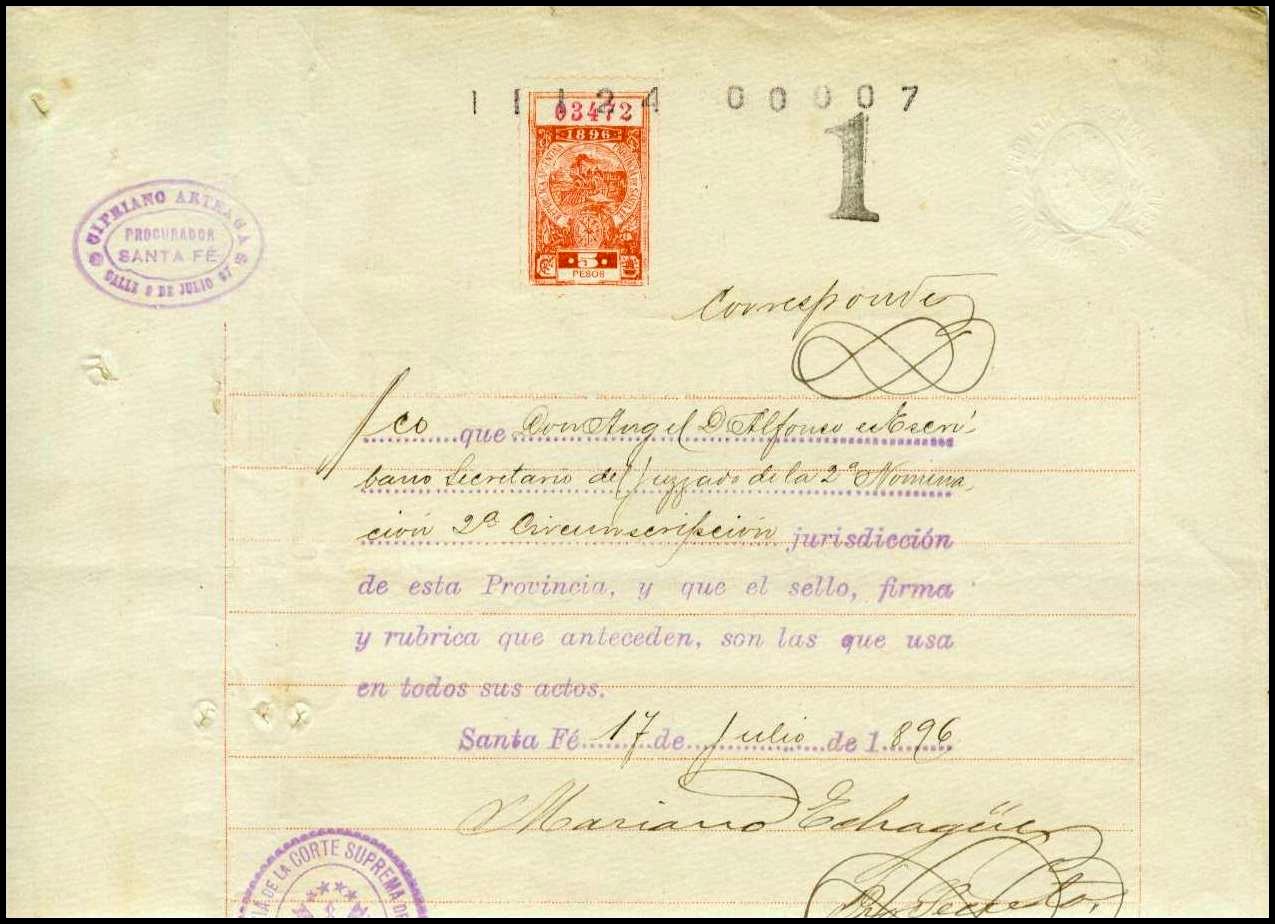 11124 00007
03472
1
1896
5
PESOS
CIPRIANO ARTEAGA
PROCURADOR
SANTA FÉ
CALLE 9 DE JULIO 67
Corresponde
co que Don Angel D. Alfonso es Escri-
bano Secretario del Juzzado de la 2ª Nomina-
ción 2ª Circunscripción jurisdicción
de esta Provincia, y que el sello, firma
y rubrica que anteceden, son las que usa
en todos sus actos.
Santa Fé 17 de Julio de 1.896
Mariano Echagüe
DE LA CORTE SUPREMA DE